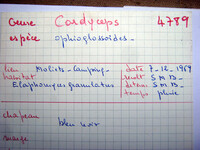 Genre Cordyceps 4789
espèce ophioglossoides.
lieu Moliets - Camping - date 7-12-1969
habitat récolt S M B
Elaphomyces granulatus déterm S M B
temps pluie
chapeau
bleu noir
marge